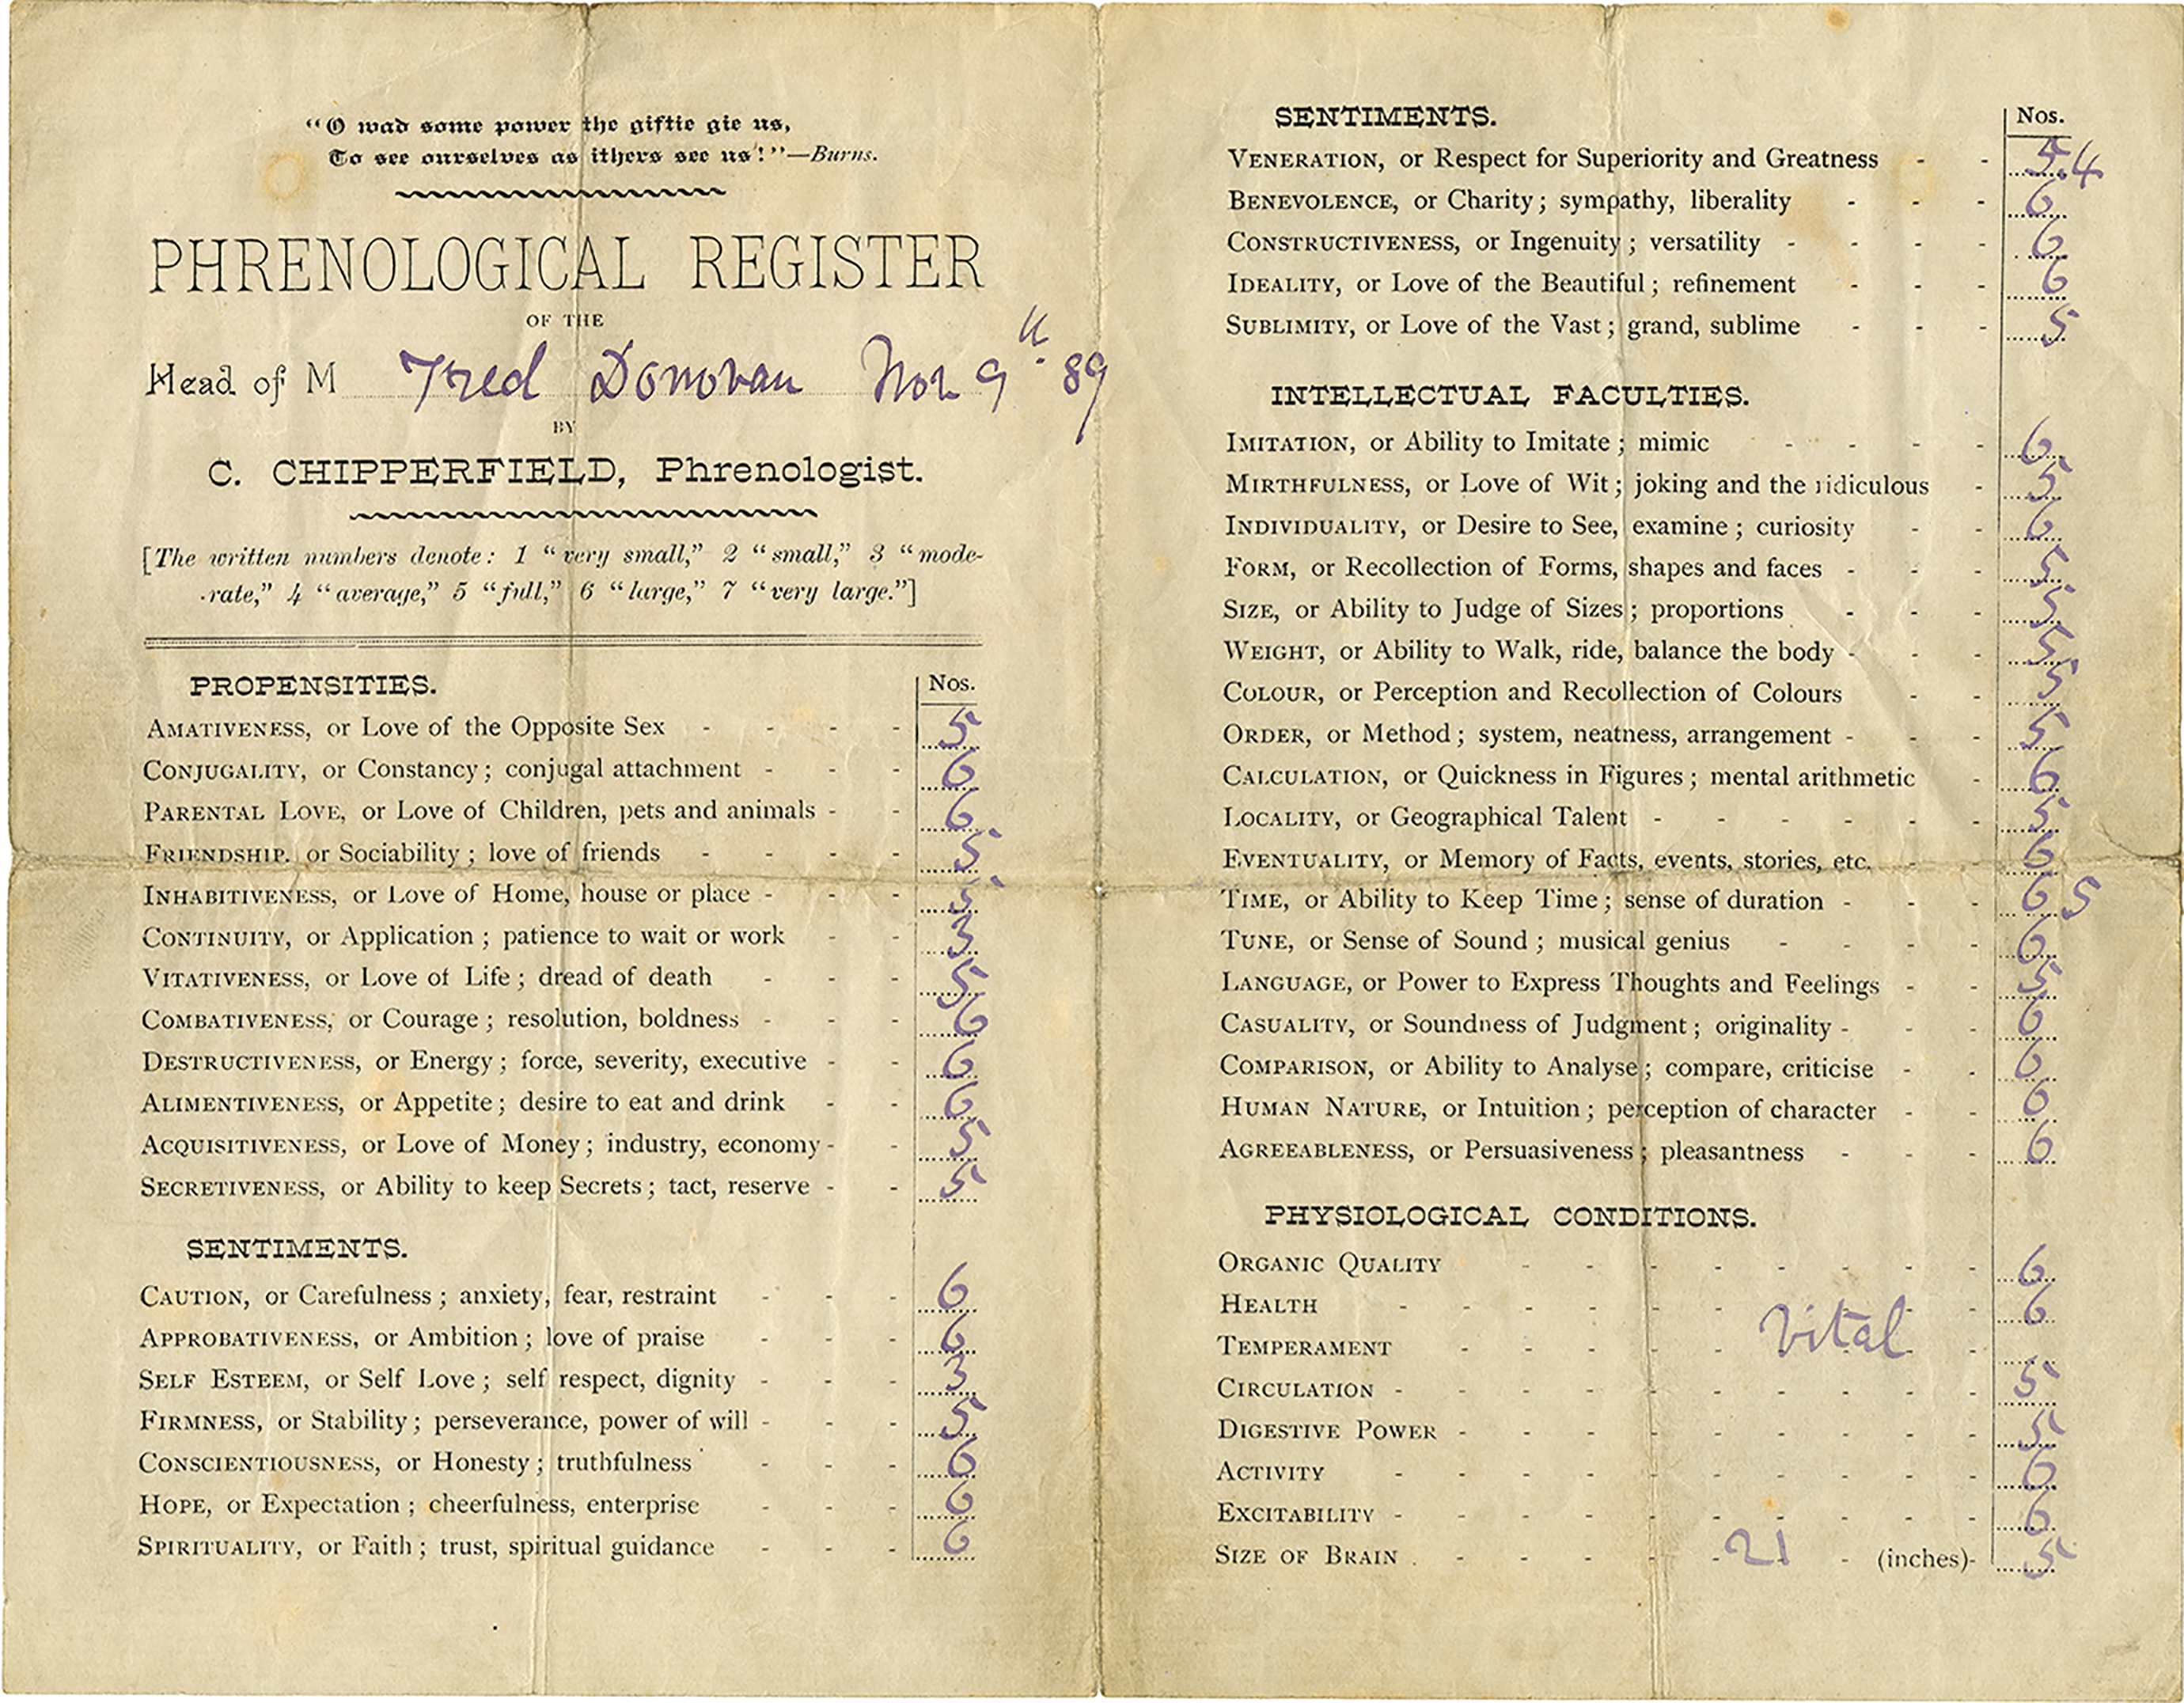 “O wad some power the giftie gie us,
To see ourselves as ithers see us!”—Burns.
PHRENOLOGICAL REGISTER
OF THE
Head of M Fred Donovan Nov 9th 89
BY
C. CHIPPERFIELD, Phrenologist.
[The written numbers denote: 1 “very small,” 2 “small,” 3 “mode-
rate,” 4 “average,” 5 “full,” 6 “large,” 7 “very large.”]
PROPENSITIES. Nos.
AMATIVENESS, or Love of the Opposite Sex - - - - 5
CONJUGALITY, or Constancy; conjugal attachment - - - 6
PARENTAL LOVE, or Love of Children, pets and animals - - 6
FRIENDSHIP. or Sociability; love of friends - - - - 5
INHABITIVENESS, or Love of Home, house or place - - - 5
CONTINUITY, or Application; patience to wait or work - - 3
VITATIVENESS, or Love of Life; dread of death - - - 5
COMBATIVENESS, or Courage; resolution, boldness - - - 6
DESTRUCTIVENESS, or Energy; force, severity, executive - - 6
ALIMENTIVENESS, or Appetite; desire to eat and drink - - 6
ACQUISITIVENESS, or Love of Money; industry, economy - - 5
SECRETIVENESS, or Ability to keep Secrets; tact, reserve - - 5
SENTIMENTS.
CAUTION, or Carefulness; anxiety, fear, restraint - - - 6
APPROBATIVENESS, or Ambition; love of praise - - - 6
SELF ESTEEM, or Self Love; self respect, dignity - - - 3
FIRMNESS, or Stability; perseverance, power of will - - - 5
CONSCIENTIOUSNESS, or Honesty; truthfulness - - - 6
HOPE, or Expectation; cheerfulness, enterprise - - - 6
SPIRITUALITY, or Faith; trust, spiritual guidance - - - 6
SENTIMENTS. Nos.
VENERATION, or Respect for Superiority and Greatness - - 5.4
BENEVOLENCE, or Charity; sympathy, liberality - - - 6
CONSTRUCTIVENESS, or Ingenuity; versatility - - - - 6
IDEALITY, or Love of the Beautiful; refinement - - - 6
SUBLIMITY, or Love of the Vast; grand, sublime - - - 5
INTELLECTUAL FACULTIES.
IMITATION, or Ability to Imitate; mimic - - - - 6
MIRTHFULNESS, or Love of Wit; joking and the ridiculous - 5
INDIVIDUALITY, or Desire to See, examine; curiosity - - 6
FORM, or Recollection of Forms, shapes and faces - - - 5
SIZE, or Ability to Judge of Sizes; proportions - - - 5
WEIGHT, or Ability to Walk, ride, balance the body - - - 5
COLOUR, or Perception and Recollection of Colours - - 5
ORDER, or Method; system, neatness, arrangement - - - 5
CALCULATION, or Quickness in Figures; mental arithmetic - 6
LOCALITY, or Geographical Talent - - - - - - 5
EVENTUALITY, or Memory of Facts, events, stories, etc. - - 6
TIME, or Ability to Keep Time; sense of duration - - - 6 5
TUNE, or Sense of Sound; musical genius - - - - 6
LANGUAGE, or Power to Express Thoughts and Feelings - - 5
CASUALITY, or Soundness of Judgment; originality - - - 6
COMPARISON, or Ability to Analyse; compare, criticise - - 6
HUMAN NATURE, or Intuition; perception of character - - 6
AGREEABLENESS, or Persuasiveness; pleasantness - - - 6
PHYSIOLOGICAL CONDITIONS.
ORGANIC QUALITY - - - - - - - - 6
HEALTH - - - - - - - - - 6
TEMPERAMENT - - - - - Vital - - -
CIRCULATION - - - - - - - - - - 5
DIGESTIVE POWER - - - - - - - - - 5
ACTIVITY - - - - - - - - - - 6
EXCITABILITY - - - - - - - - - - 6
SIZE OF BRAIN - - - - - 21 - (inches)- 5